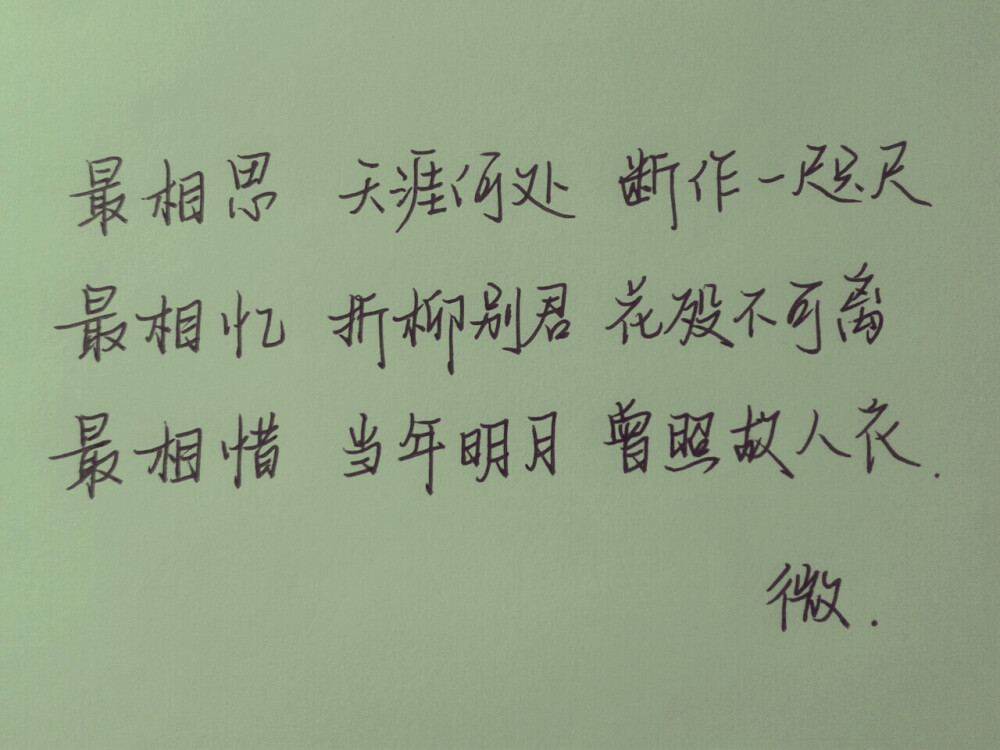 最相思 天涯何处 断作一咫尺
最相忆 折柳别君 花殁不可离
最相惜 当年明月 曾照故人衣.
微.